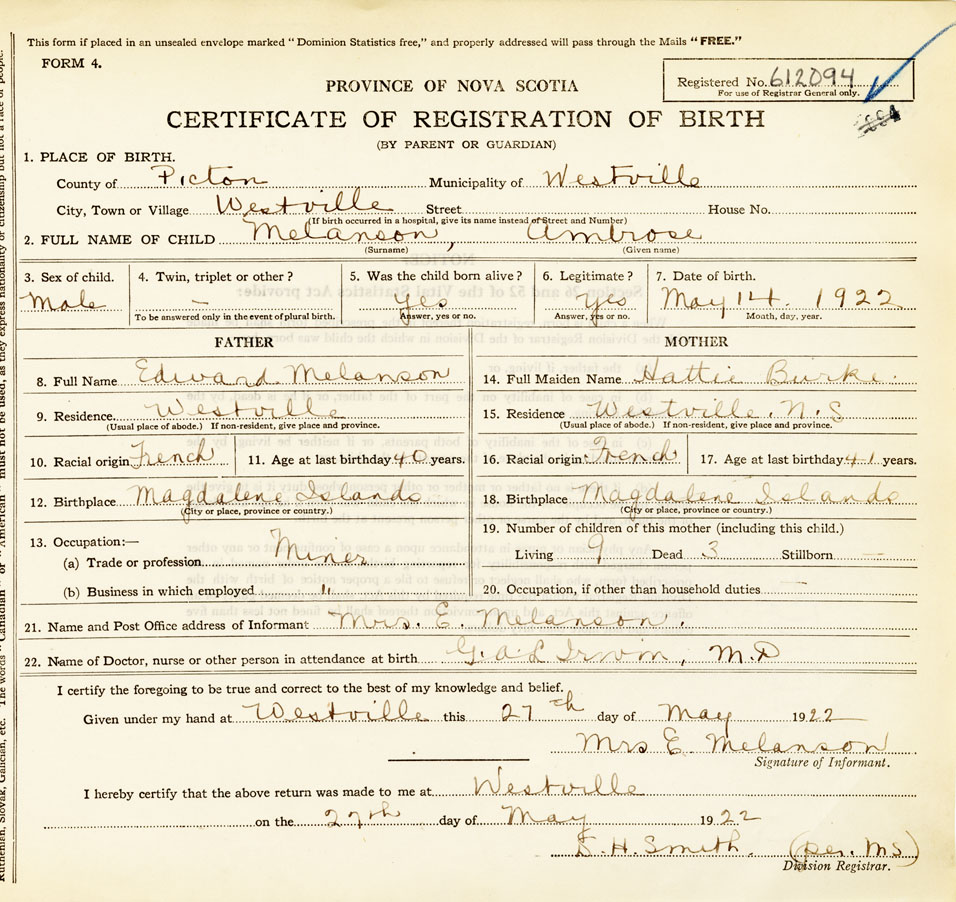 This form if placed in an unsealed envelope marked "Dominion Statistics free," and properly addressed will pass through the Mails "FREE."
FORM 4.
Registered No. 612094
For use of Registrar General only.
PROVINCE OF NOVA SCOTIA
CERTIFICATE OF REGISTRATION OF BIRTH
(BY PARENT OR GUARDIAN)
1. PLACE OF BIRTH.
County of Picton Municipality of Westville
City, Town or Village Westville Street House No.
(If birth occurred in a hospital, give its name instead of Street and Number)
2. FULL NAME OF CHILD Melanson, Ambrose
(Surname) (Given name)
3. Sex of child. 4. Twin, triplet or other? 5. Was the child born alive? 6. Legitimate? 7. Date of birth.
Male — Yes Yes May 14. 1922
To be answered only in the event of plural birth. Answer, yes or no. Answer, yes or no. Month, day, year.
FATHER MOTHER
8. Full Name Edward Melanson 14. Full Maiden Name Hattie Burke.
9. Residence Westville 15. Residence Westville. N.S
(Usual place of abode.) If non-resident, give place and province. (Usual place of abode.) If non-resident, give place and province.
10. Racial origin French 11. Age at last birthday 40 years. 16. Racial origin French 17. Age at last birthday 41 years.
12. Birthplace Magdalene Islands 18. Birthplace Magdalene Islands
(City or place, province or country.) (City or place, province or country.)
13. Occupation:— 19. Number of children of this mother (including this child.)
(a) Trade or profession Miner Living 9 Dead 3 Stillborn —
(b) Business in which employed " 20. Occupation, if other than household duties —
21. Name and Post Office address of Informant Mrs. E. Melanson.
22. Name of Doctor, nurse or other person in attendance at birth G. A. L Irvin, M.D
I certify the foregoing to be true and correct to the best of my knowledge and belief.
Given under my hand at Westville this 27th day of May 1922
Mrs E. Melanson
Signature of Informant.
I hereby certify that the above return was made to me at Westville
on the 27th day of May 1922
D. H. Smith. (per. MS)
Division Registrar.
Ruthenian, Slovak, Galician, etc. The words "Canadian" or "American" must not be used, as they express nationality or citizenship but not a race of people.